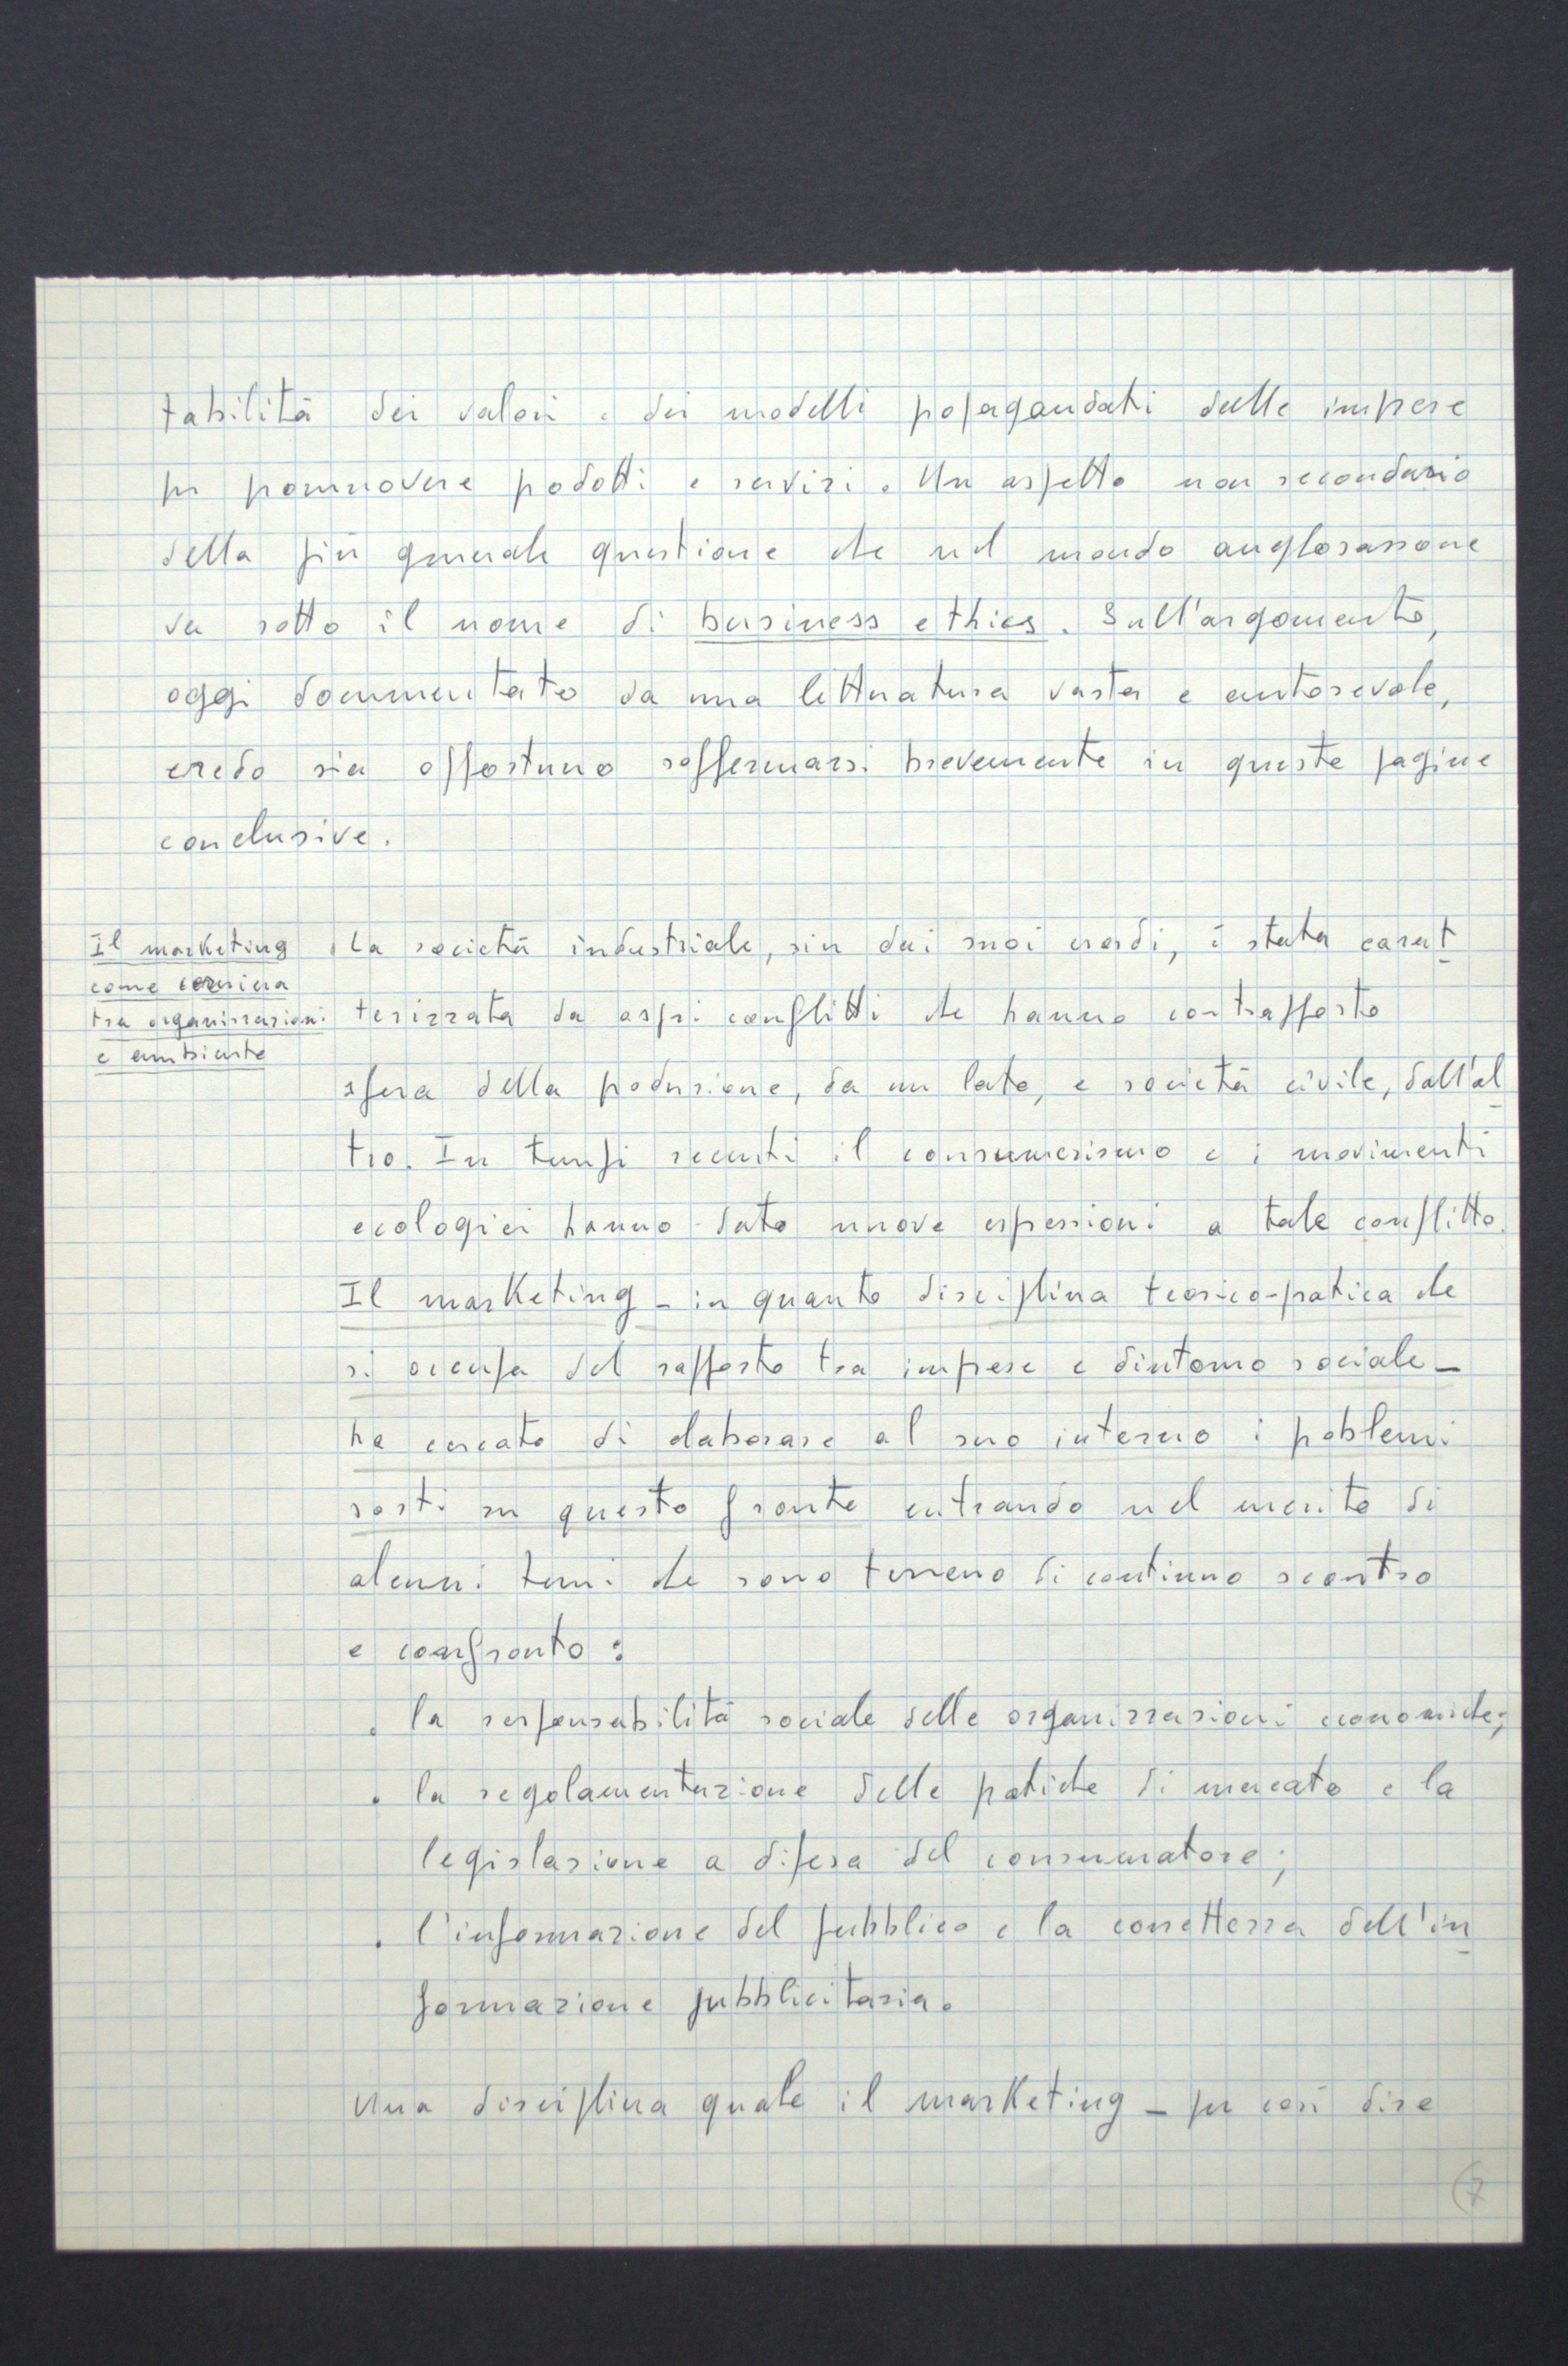 tabilità dei valori e dei modelli propagandati dalle imprese
per promuovere prodotti e servizi. Un aspetto non secondario
della più generale questione che nel mondo anglosassone
va sotto il nome di business ethics. Sull'argomento,
oggi documentato da una letteratura vasta e autorevole,
credo sia opportuno soffermarsi brevemente in queste pagine
conclusive.
Il marketing
come cerniera
tra organizzazioni
e ambiente
La società industriale, sin dai suoi esordi, è stata carat
terizzata da aspri conflitti che hanno contrapposto
sfera della produzione, da un lato, e società civile, dall'al
tro. In tempi recenti il consumerismo e i movimenti
ecologici hanno dato nuove espressioni a tale conflitto.
Il marketing - in quanto disciplina teorico-pratica che
si occupa del rapporto tra imprese e dintorno sociale -
ha cercato di elaborare al suo interno i problemi
sorti su questo fronte entrando nel merito di
alcuni temi che sono terreno di continuo scontro
e confronto:
. la responsabilità sociale delle organizzazioni economiche;
. la regolamentazione delle pratiche di mercato e la
legislazione a difesa del consumatore;
. l'informazione del pubblico e la correttezza dell'in
formazione pubblicitaria.
Una disciplina quale il marketing - per così dire
(7